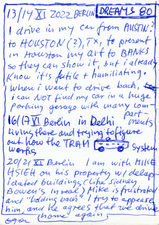 13/14 XI 2022 BERLIN DREAMS 80
I drive in my car from AUSTIN
TO HOUSTON (?), TX. to present
in Houston my art TO BANKS
so they can show it, but I already
know it's futile & humiliating.
when I want to drive back,
I can NOT find my car in a huge
parking garage with many com
partments
16/17 XI Berlin in Delhi
Living there and trying to figure
out how the TRAM system
works
20/21 XI Berlin I am with MIKE
HSIEH on his property w/ delap
idated buildings (like Jimmy
Bowen's in real) Mike is frustrated
and "fading out" I try to appease
him, and he agrees that we drive
home again